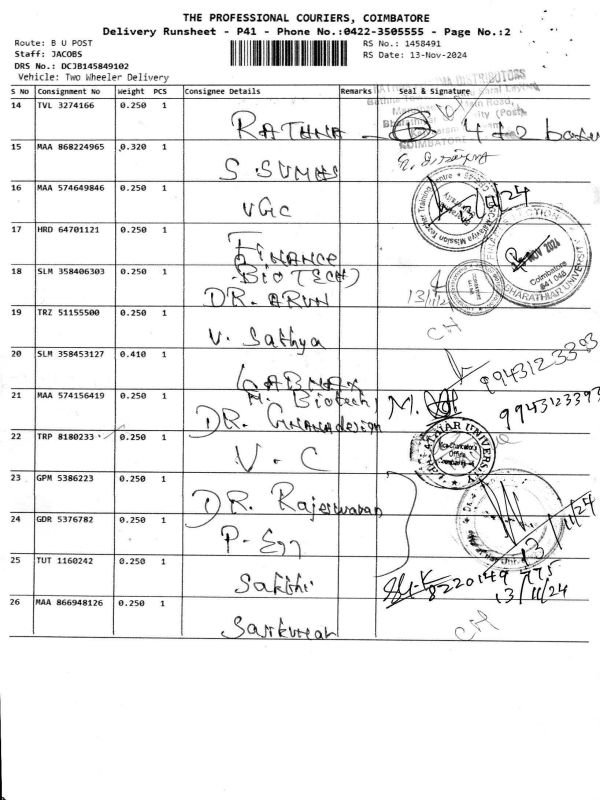 THE PROFESSIONAL COURIERS, COIMBATORE
Delivery Runsheet - P41 - Phone No.:0422-3505555 - Page No.:2
Route: B U POST
RS No.: 1458491
Staff: JACOBS
RS Date: 13-Nov-2024
DRS No.: DCJB145849102
Vehicle: Two Wheeler Delivery
S No Consignment No Weight PCS Consignee Details Remarks Seal & Signature
14 TVL 3274166 0.250 1 RATHNA
15 MAA 868224965 0.320 1
16 MAA 574649846 0.250 1 VGC 13/11/24
17 HRD 64701121 0.250 1 FINANCE
18 SLM 358406303 0.250 1 BIOTECH) DR. ARUN 13/11/2
19 TRZ 51155500 0.250 1 V. Sathya CH
20 SLM 358453127 0.410 1 LABMAX 9943123393
21 MAA 574156419 0.250 1 M. Biotech, M. 9943123393
DR.
22 TRP 8180233 0.250 1 V.C
23 GPM 5386223 0.250 1 DR. Rajeswaran
24 GDR 5376782 0.250 1 13/11/24
25 TUT 1160242 0.250 1 Sakthi 8220149775 13/11/24
26 MAA 866948126 0.250 1 CH